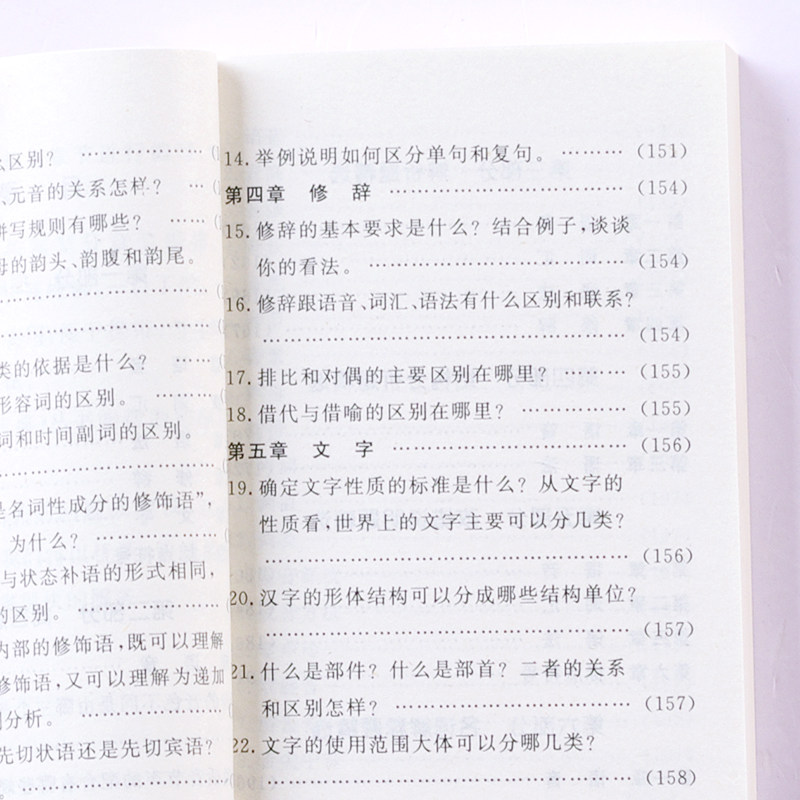 么区别? ………………
、元音的关系怎样? ……
拼写规则有哪些? ……
母的韵头、韵腹和韵尾。
………………………
………………………
类的依据是什么? ……
形容词的区别。 ………
词和时间副词的区别。
………………………
是名词性成分的修饰语”,
为什么? ……………
与状态补语的形式相同,
的区别。 ……………
内部的修饰语,既可以理解
修饰语,又可以理解为递加
别分析。 ……………
先切状语还是先切宾语?
………………………
14. 举例说明如何区分单句和复句。 ……… (151)
第四章 修 辞 ………………………… (154)
15. 修辞的基本要求是什么? 结合例子,谈谈
你的看法。 ………………………… (154)
16. 修辞跟语音、词汇、语法有什么区别和联系?
………………………………………… (154)
17. 排比和对偶的主要区别在哪里? ……… (155)
18. 借代与借喻的区别在哪里? ………… (155)
第五章 文 字 ………………………… (156)
19. 确定文字性质的标准是什么? 从文字的
性质看,世界上的文字主要可以分几类?
………………………………………… (156)
20. 汉字的形体结构可以分成哪些结构单位?
………………………………………… (157)
21. 什么是部件? 什么是部首? 二者的关系
和区别怎样? ………………………… (157)
22. 文字的使用范围大体可以分哪几类?
………………………………………… (158)